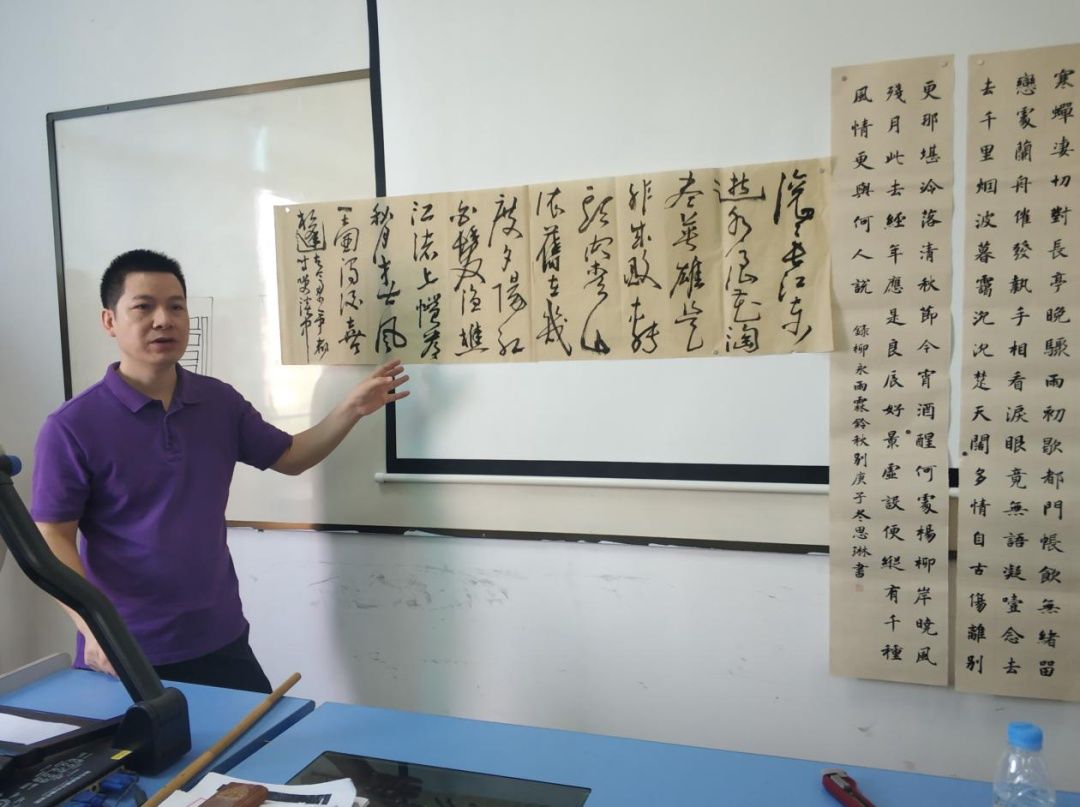 寒蟬淒切對長亭晚驟雨初歇都門帳飲無緒留
戀處蘭舟催發執手相看淚眼竟無語凝噎念去
去千里烟波暮靄沈沈楚天闊多情自古傷離別
更那堪冷落清秋節今宵酒醒何處楊柳岸曉風
殘月此去經年應是良辰好景虛設便縱有千種
風情更與何人說
錄柳永雨霖鈴秋別庚子冬思琳書
滾滾長江東
逝水浪花淘
盡英雄是
非成敗轉
頭空青山
依舊在幾
度夕陽紅
白髮漁樵
江渚上慣看
秋月春風
一壺濁酒喜
相逢